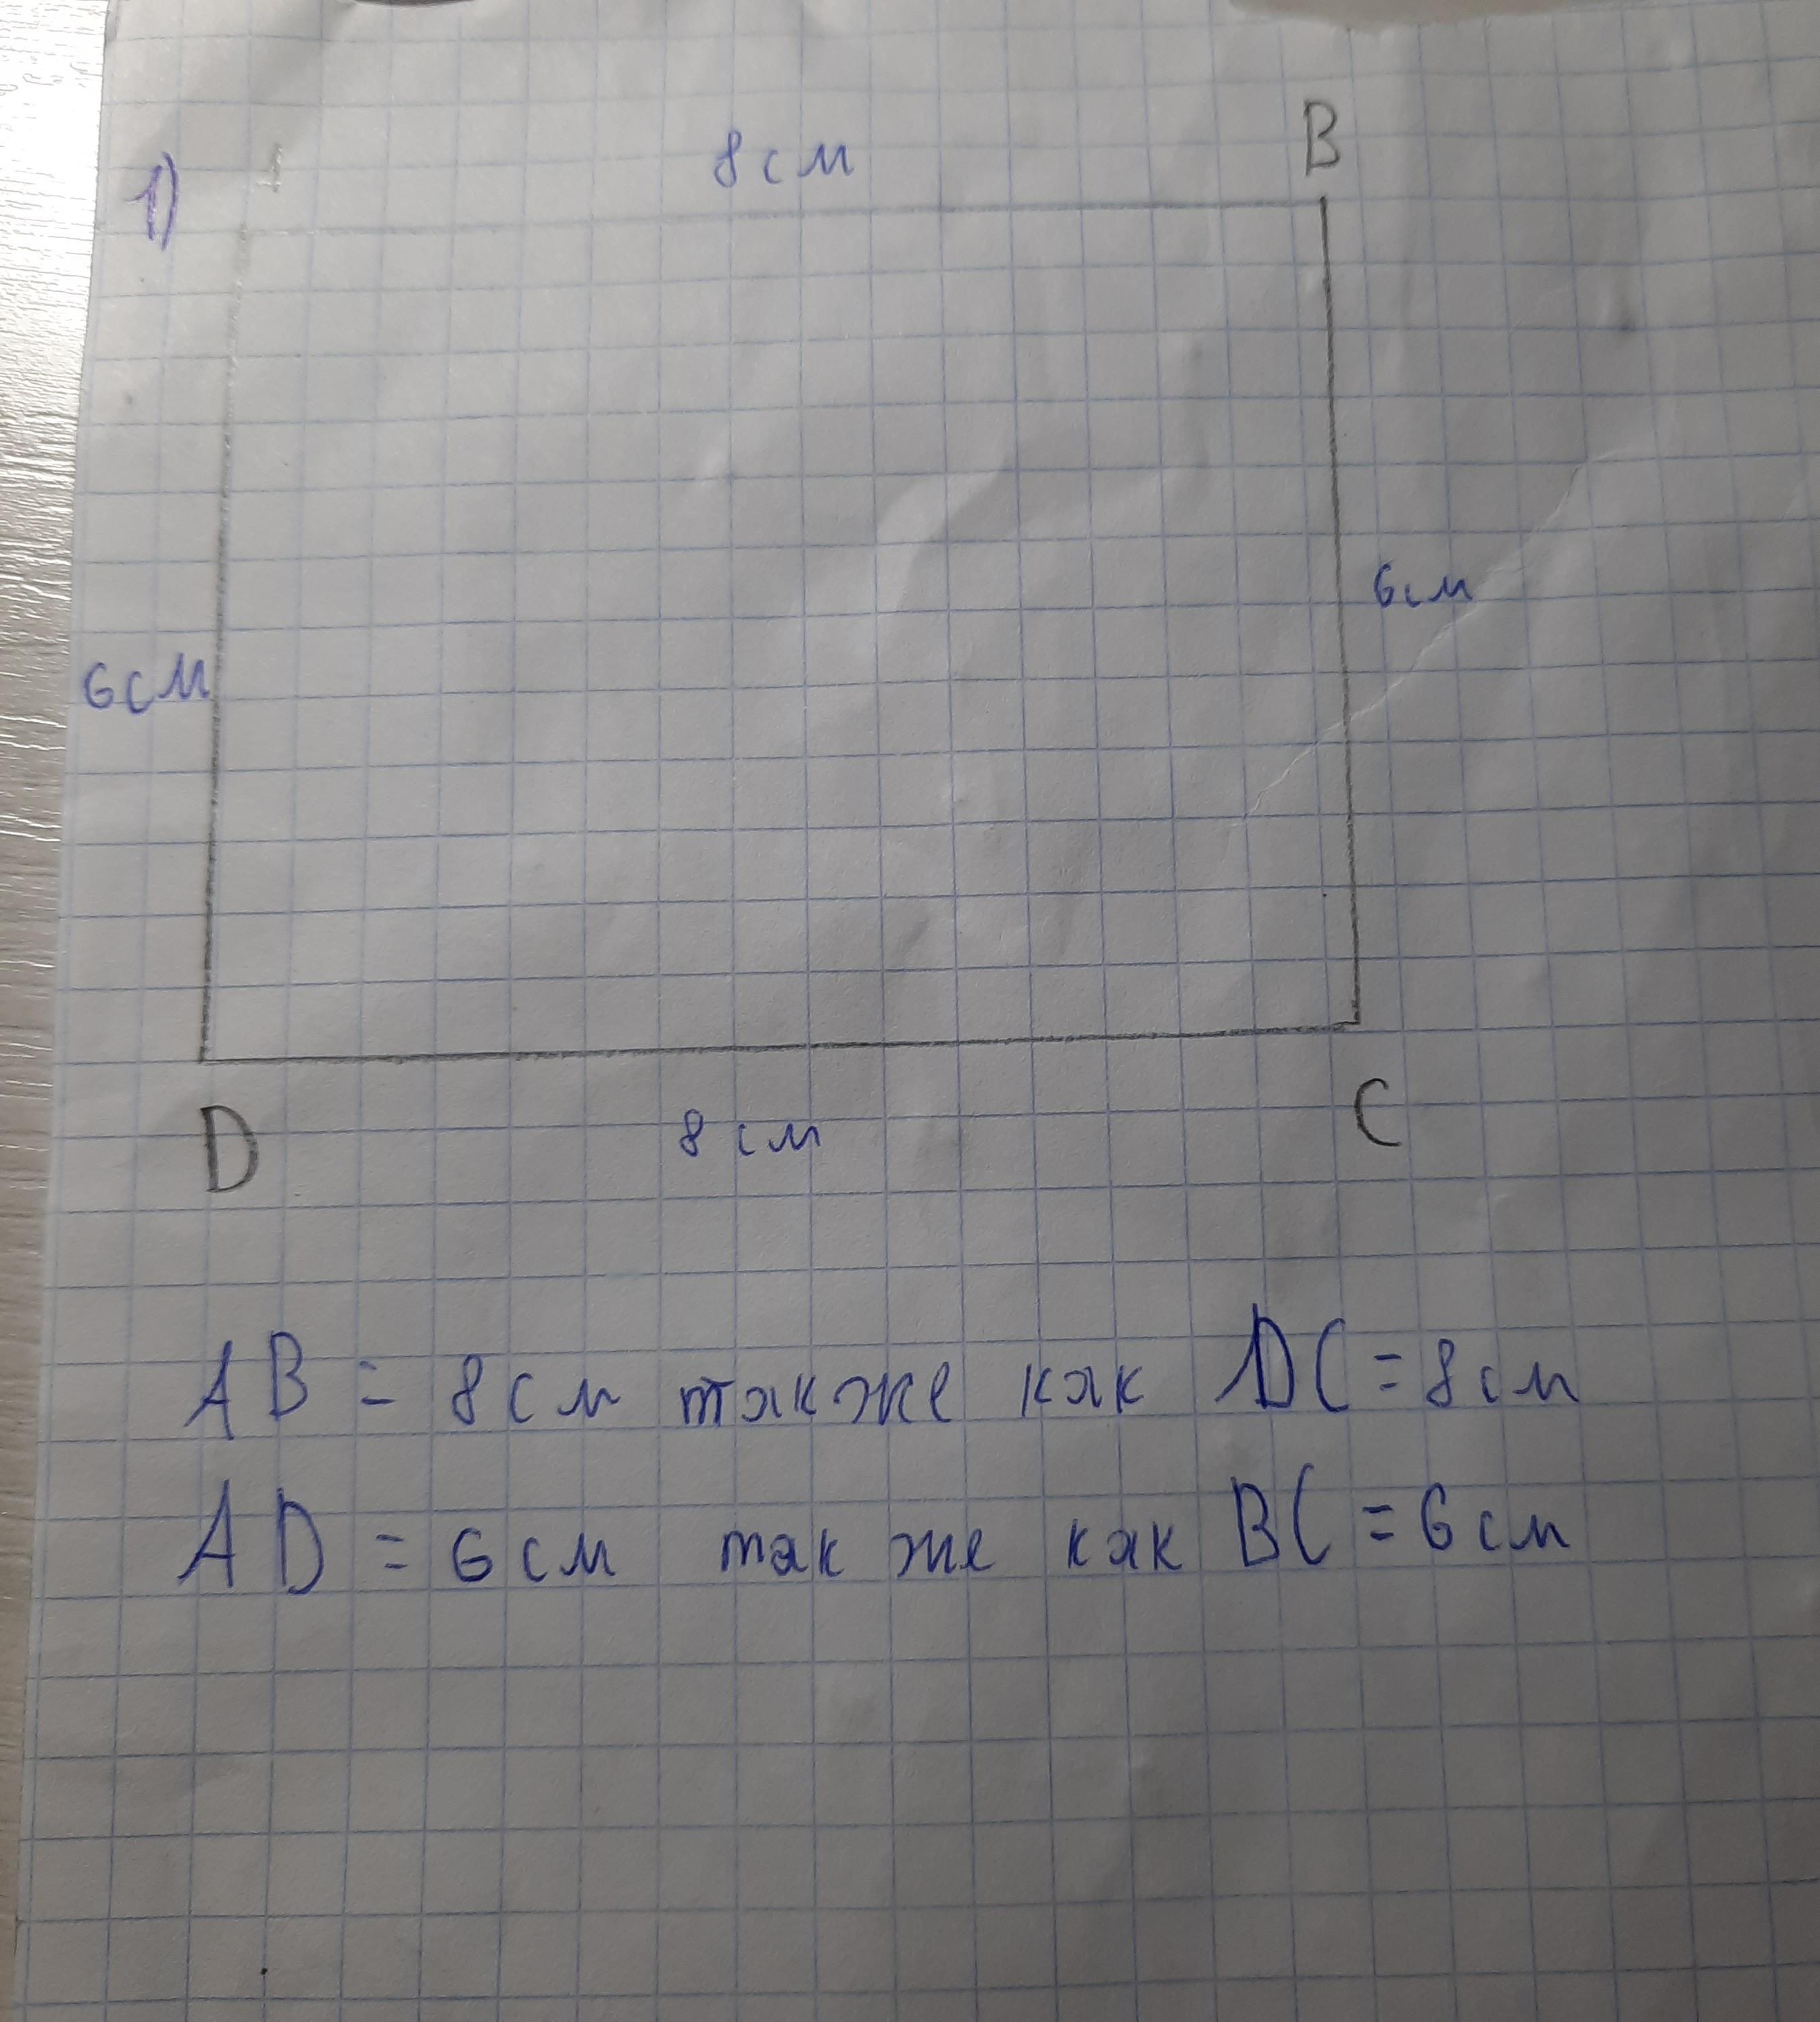 1) 8 см B
6 см
6 см
D 8 см C
AB = 8 см также как DC = 8 см
AD = 6 см так же как BC = 6 см